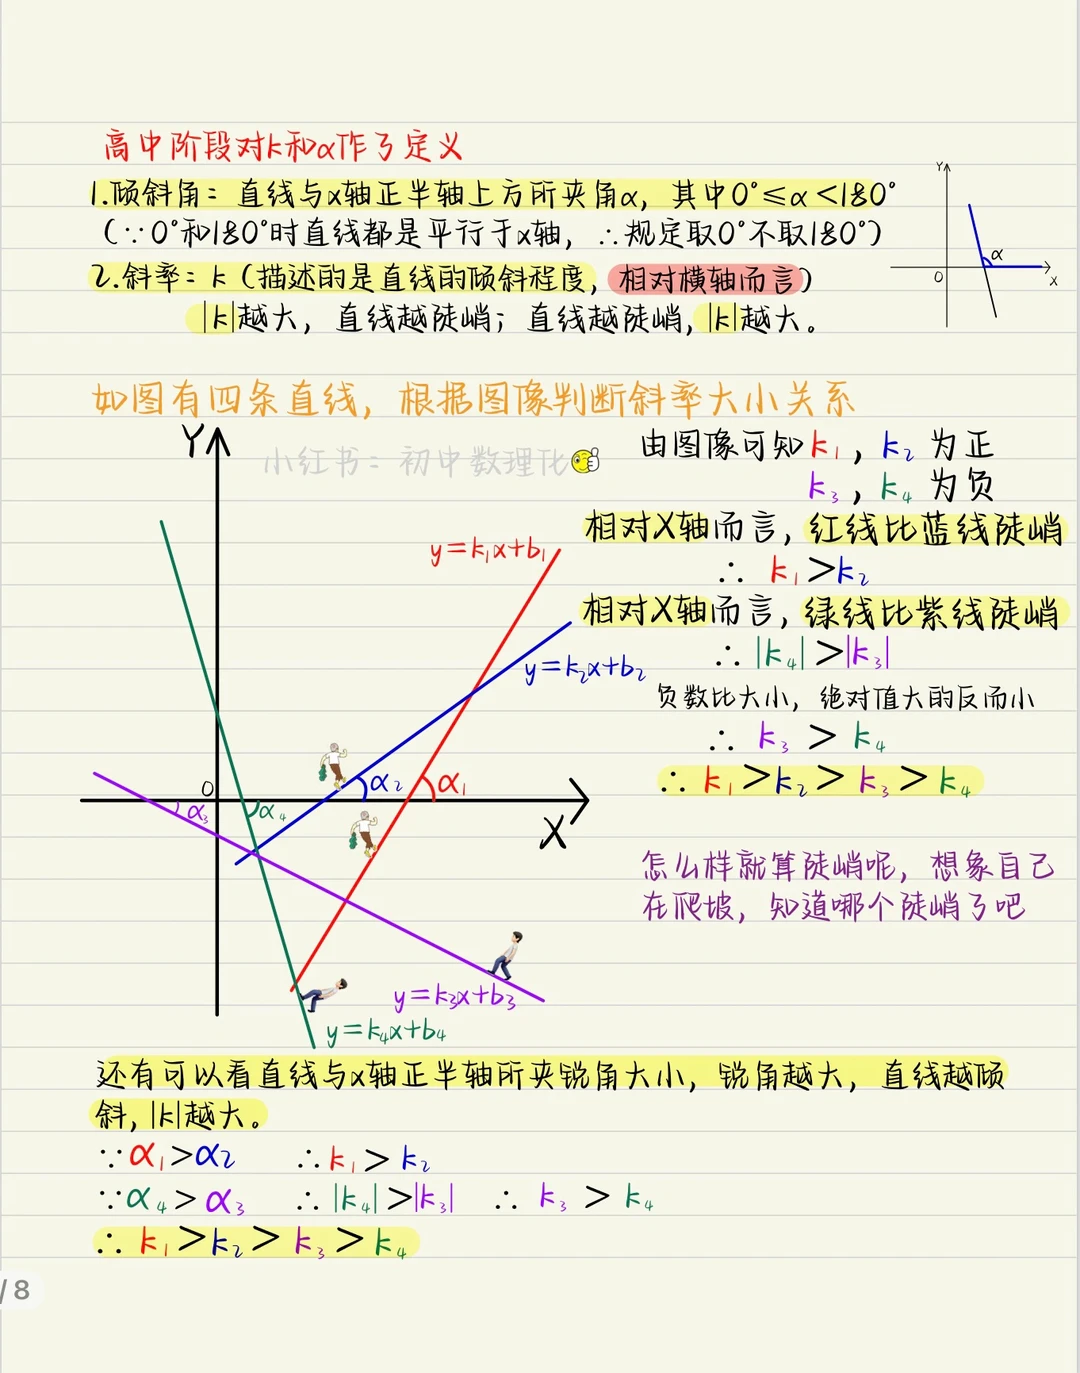 高中阶段对k和α作了定义
1.倾斜角：直线与x轴正半轴上方所夹角α，其中0°≤α<180°
（∵0°和180°时直线都是平行于x轴，∴规定取0°不取180°）
2.斜率：k（描述的是直线的倾斜程度，相对横轴而言）
|k|越大，直线越陡峭；直线越陡峭，|k|越大。
Y
α
O
X
如图有四条直线，根据图像判断斜率大小关系
Y
小红书：初中数理化
由图像可知k₁，k₂为正
k₃，k₄为负
相对X轴而言，红线比蓝线陡峭
y=k₁x+b₁
∴ k₁>k₂
相对X轴而言，绿线比紫线陡峭
y=k₂x+b₂
∴ |k₄|>|k₃|
负数比大小，绝对值大的反而小
∴ k₃ > k₄
∴ k₁>k₂>k₃>k₄
O
α₂
α₁
α₃
α₄
X
怎么样就算陡峭呢，想象自己
在爬坡，知道哪个陡峭了吧
y=k₃x+b₃
y=k₄x+b₄
还有可以看直线与x轴正半轴所夹锐角大小，锐角越大，直线越倾
斜，|k|越大。
∵α₁>α₂ ∴k₁>k₂
∵α₄>α₃ ∴|k₄|>|k₃| ∴ k₃ > k₄
∴ k₁>k₂>k₃>k₄
/8